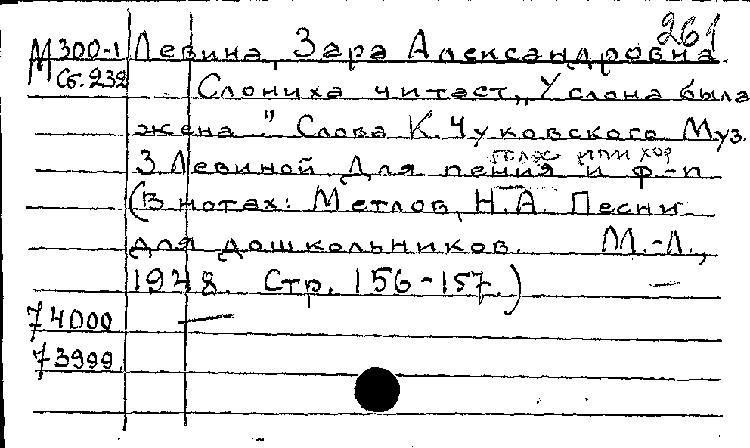 261
М 300-1 Левина, Зара Александровна.
Сб. 232 Слониха читает „У слона была
жена" Слова К. Чуковского Муз.
З Левиной Для пения и ф-п
или хор
(В нотах: Метлов, Н.А. Песни
для дошкольников. М.-Л.,
1948. Стр. 156-157.)
74000
73999.